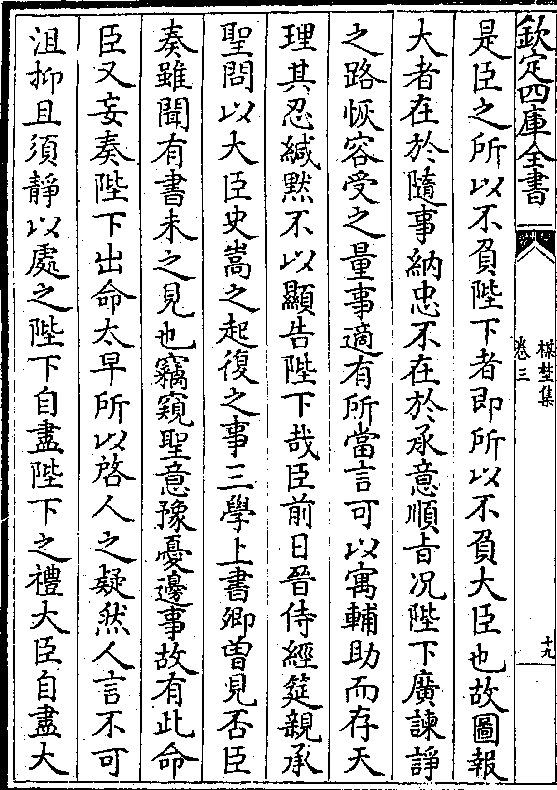 欽定四庫全書
楳埜集
卷三
十九
是臣之所以不負陛下者即所以不負大臣也故圖報
大者在於隨事納忠不在於承意順㫖况陛下廣諫諍
之路恢容受之量事適有所當言可以寓輔助而存天
理其忍緘黙不以顯告陛下哉臣前日晉侍經筵親承
聖問以大臣史嵩之起復之事三學上書卿曽見否臣
奏雖聞有書未之見也竊窺聖意豫憂邊事故有此命
臣又妄奏陛下出命太早所以啓人之疑然人言不可
沮抑且須靜以處之陛下自盡陛下之禮大臣自盡大